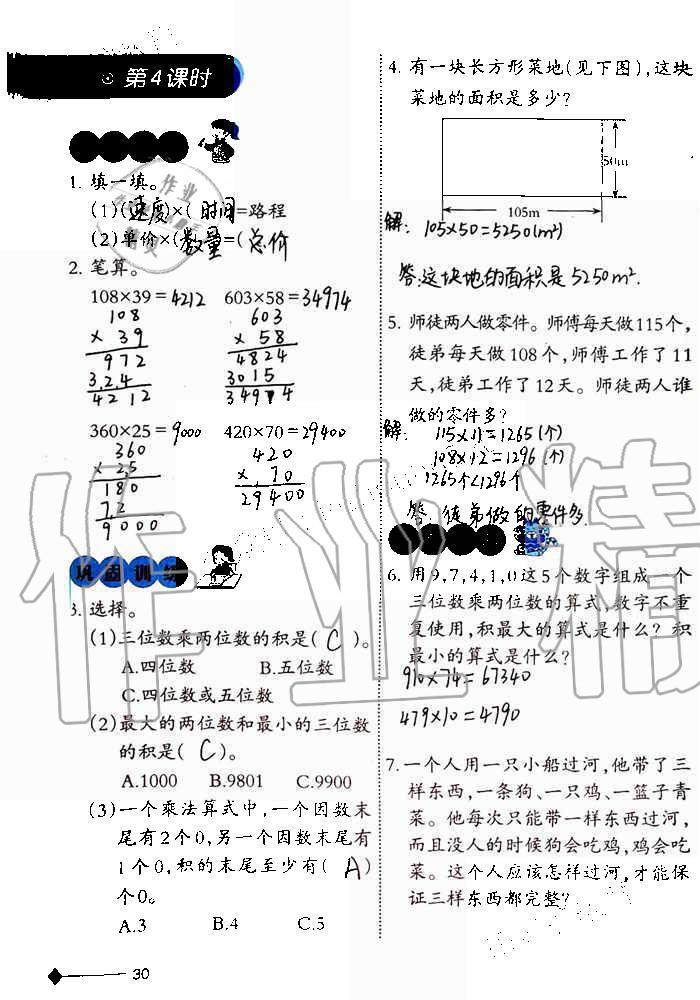 第4课时
1. 填一填。
(1)(速度)×(时间=路程
(2)单价×(数量=(总价
2. 笔算。
108×39=4212 603×58=34974
108
× 39
972
3 2 4
4212
603
× 58
4824
3015
34974
360×25=9000 420×70=29400
360
× 25
180
72
9000
420
× 70
29400
巩固训练
3. 选择。
(1)三位数乘两位数的积是( C )。
A.四位数 B.五位数
C.四位数或五位数
(2)最大的两位数和最小的三位数
的积是( C )。
A.1000 B.9801 C.9900
(3)一个乘法算式中,一个因数末
尾有2个0,另一个因数末尾有
1个0,积的末尾至少有( A )
个0。
A.3 B.4 C.5
30
4. 有一块长方形菜地(见下图),这块
菜地的面积是多少?
50m
105m
解: 105×50=5250(m²)
答:这块地的面积是5250m².
5. 师徒两人做零件。师傅每天做115个,
徒弟每天做108个,师傅工作了11
天,徒弟工作了12天。师徒两人谁
做的零件多?
解: 115×11=1265(个)
108×12=1296(个)
1265个<1296个
答:徒弟做的零件多.
6. 用9,7,4,1,0这5个数字组成一个
三位数乘两位数的算式,数字不重
复使用,积最大的算式是什么? 积
最小的算式是什么?
910×74=67340
479×10=4790
7. 一个人用一只小船过河,他带了三
样东西,一条狗、一只鸡、一篮子青
菜。他每次只能带一样东西过河,
而且没人的时候狗会吃鸡,鸡会吃
菜。这个人应该怎样过河,才能保
证三样东西都完整?
作业精